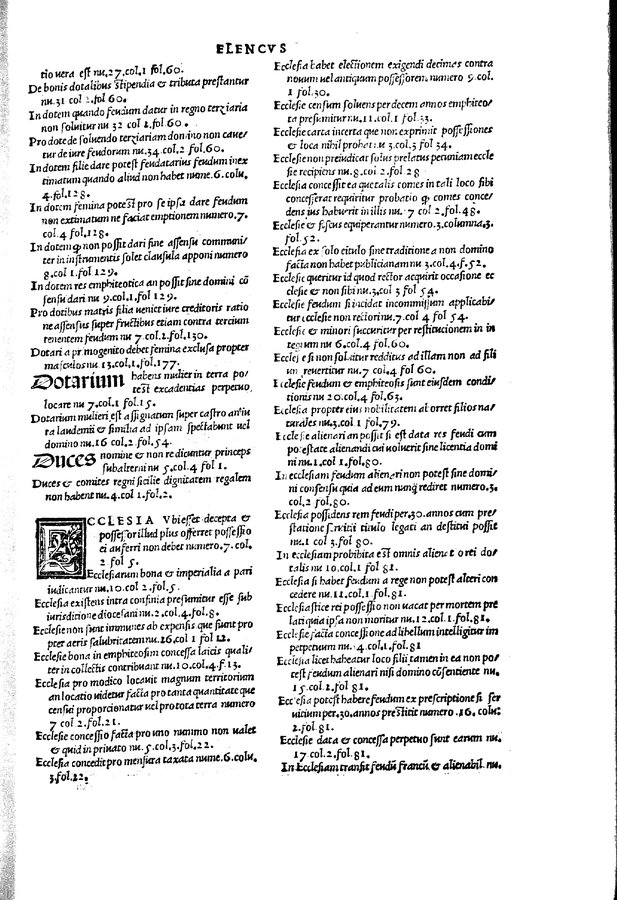 ELENCVS
tio vera est nu.27.col.1 fol.60.
De bonis dotalibus stipendia & tributa prestantur
nu.31 col 2.fol 60.
In dotem quando feudum datur in regno terziaria
non soluitur nu 32 col 1.fol 60.
Pro dote de soluendo terziariam domino non caue/
tur de iure feudorum nu.34.col.2 fol.60.
In dotem filie dare potest feudatarius feudum inex
timatum quando aliud non habet nume.6.colu,
4.fol.128.
In dotem femina potest pro se ipsa dare feudum
non extimatum ne faciat emptionem numero.7.
col.4 fol,128.
In dotem qp non possit dari sine assensu communi/
ter in instrumentis solet clausula apponi numero
8.col.1.fol 129.
In dotem res emphiteotica an possit sine domini cõ
sensu dari nu 9.col.1.fol 129.
Pro dotibus matris filia uenit iure creditoris ratio
ne assensus super fructibus etiam contra tercium
tenentem feudum nu 7.col.1.fol,130.
Dotari a primogenito debet femina exclusa propter
masculos nu 13.col,1.fol,177.
Dotarium habens mulier in terra po/
test excadentias perpetuo
locare nu 7.col.1 fol.15.
Dotarium mulieri est assignatum super castro an
ta laudemii & similia ad ipsam spectabunt uel
domino nu.16 col.2.fol.54.
Duces nomine & non re dicuntur princeps
subalterni nu 5.col.4 fol 1.
Duces & comites regni sicilie dignitatem regalem
non habent nu.4.col.1.fol.2.
ECCLESIA Vbi esset decepta &
possessor illud plus offerret possessio
ei auferri non debet numero.7.col.
2 fol 5.
Ecclesiarum bona & imperialia a pari
iudicantur nu.10.col 2.fol.5.
Ecclesia existens intra confinia presumitur esse sub
iurisditione diocesani nu.2.col.4.fol.8.
Ecclesie non sunt immunes ab expensis que sunt pro
pter aeris salubritatem nu.26.col 1 fol 12.
Ecclesie bona in emphiteosim concessa laicis quali/
ter in collectis contribuant nu.10.col.4.f.13.
Ecclesia pro modico locauit magnum territorium
an locatio uidetur facta pro tanta quantitate que
censui proporcionatur uel pro tota terra numero
7 col 2.fol.21.
Ecclesie concessio facta pro uno nummo non ualet
& quid in priuato nu.5.col.3.fol.22.
Ecclesia concedit pro mensura taxata nume.6.colu.
3.fol.22.
Ecclesia habet electionem exigendi decimas contra
nouum uel antiquum possessorem.numero 9.col.
1 fol.30.
Ecclesie censum soluens per decem annos emphiteo/
ta presumitur nu.11.col.1 fol.33.
Ecclesie carta incerta que non exprimit possessiones
& loca nihil probat nu 3.col.3 fol 34.
Ecclesie non preiudicat solus prelatus pecuniam eccle
sie recipiens nu.8.col 2.fol 28
Ecclesia concessit ea que talis comes in tali loco sibi
concesserat requiritur probatio qp comes conce/
dens ius habuerit in illis nu.7 col 2.fol.48.
Ecclesie & fiscus equiperantur numero.3.columna.3.
fol.52.
Ecclesia ex solo titulo sine traditione a non domino
facta non habet publicianam nu 3.col.4.f.52.
Ecclesie queritur id quod rector acquirit occasione ec
clesie & non sibi nu.3,col 3 fol 54.
Ecclesie feudum si incidat in commissum applicabi/
tur ecclesie non rectori nu.7.col 4 fol 54.
Ecclesie & minori succuritur per restitucionem in in
tegrum nu 6.col.4 fol.60.
Ecclesie si non soluitur redditus ad illam non ad fili
um reuertitur nu.7 col.4 fol 60.
Ecclesie feudum & emphiteosis sunt eiusdem condi/
tionis nu 20.col.4 fol.63.
Ecclesia propter eius nobilitatem abhorret filios na/
turales nu.3.col.1 fol.79.
Ecclesie alienari an possit si est data res feudi cum
potestate alienandi cui uoluerit sine licentia domi
ni nu.1.col 1.fol.80.
In ecclesiam feudum alienari non potest sine domi/
ni consensu quia ad eum nunq̃ rediret numero.3.
col.2 fol.80.
Ecclesia possidens rem feudi per.30.annos cum pre/
statione seruitii titulo legati an destitui possit
nu.1 col 3.fol.80.
In ecclesiam prohibita est omnis alienatio rei do/
talis nu 10.col.1 fol 81.
Ecclesia si habet feudum a rege non potest alteri con
cedere nu.11.col.1 fol.81.
Ecclesiastice rei possessio non uacat per mortem pre
lati quia ipsa non moritur nu.12.col.1.fol.81.
Ecclesie facta concessione ad libellum intelligitur im
perpetuum nu 4.col.1.fol.81
Ecclesia licet habeatur loco filii tamen in ea non po/
test feudum alienari nisi domino cõsentiente nu,
15.col.1.fol 81.
Ecclesia potest habere feudum ex prescriptione si ser
uitium per.30.annos prestitit numero.16.colu:
2.fol.81.
Ecclesie data & concessa perpetuo sunt earum nu.
17 col.2.fol.81.
In Ecclesiam transit feudũ francũ & alienabil nu.